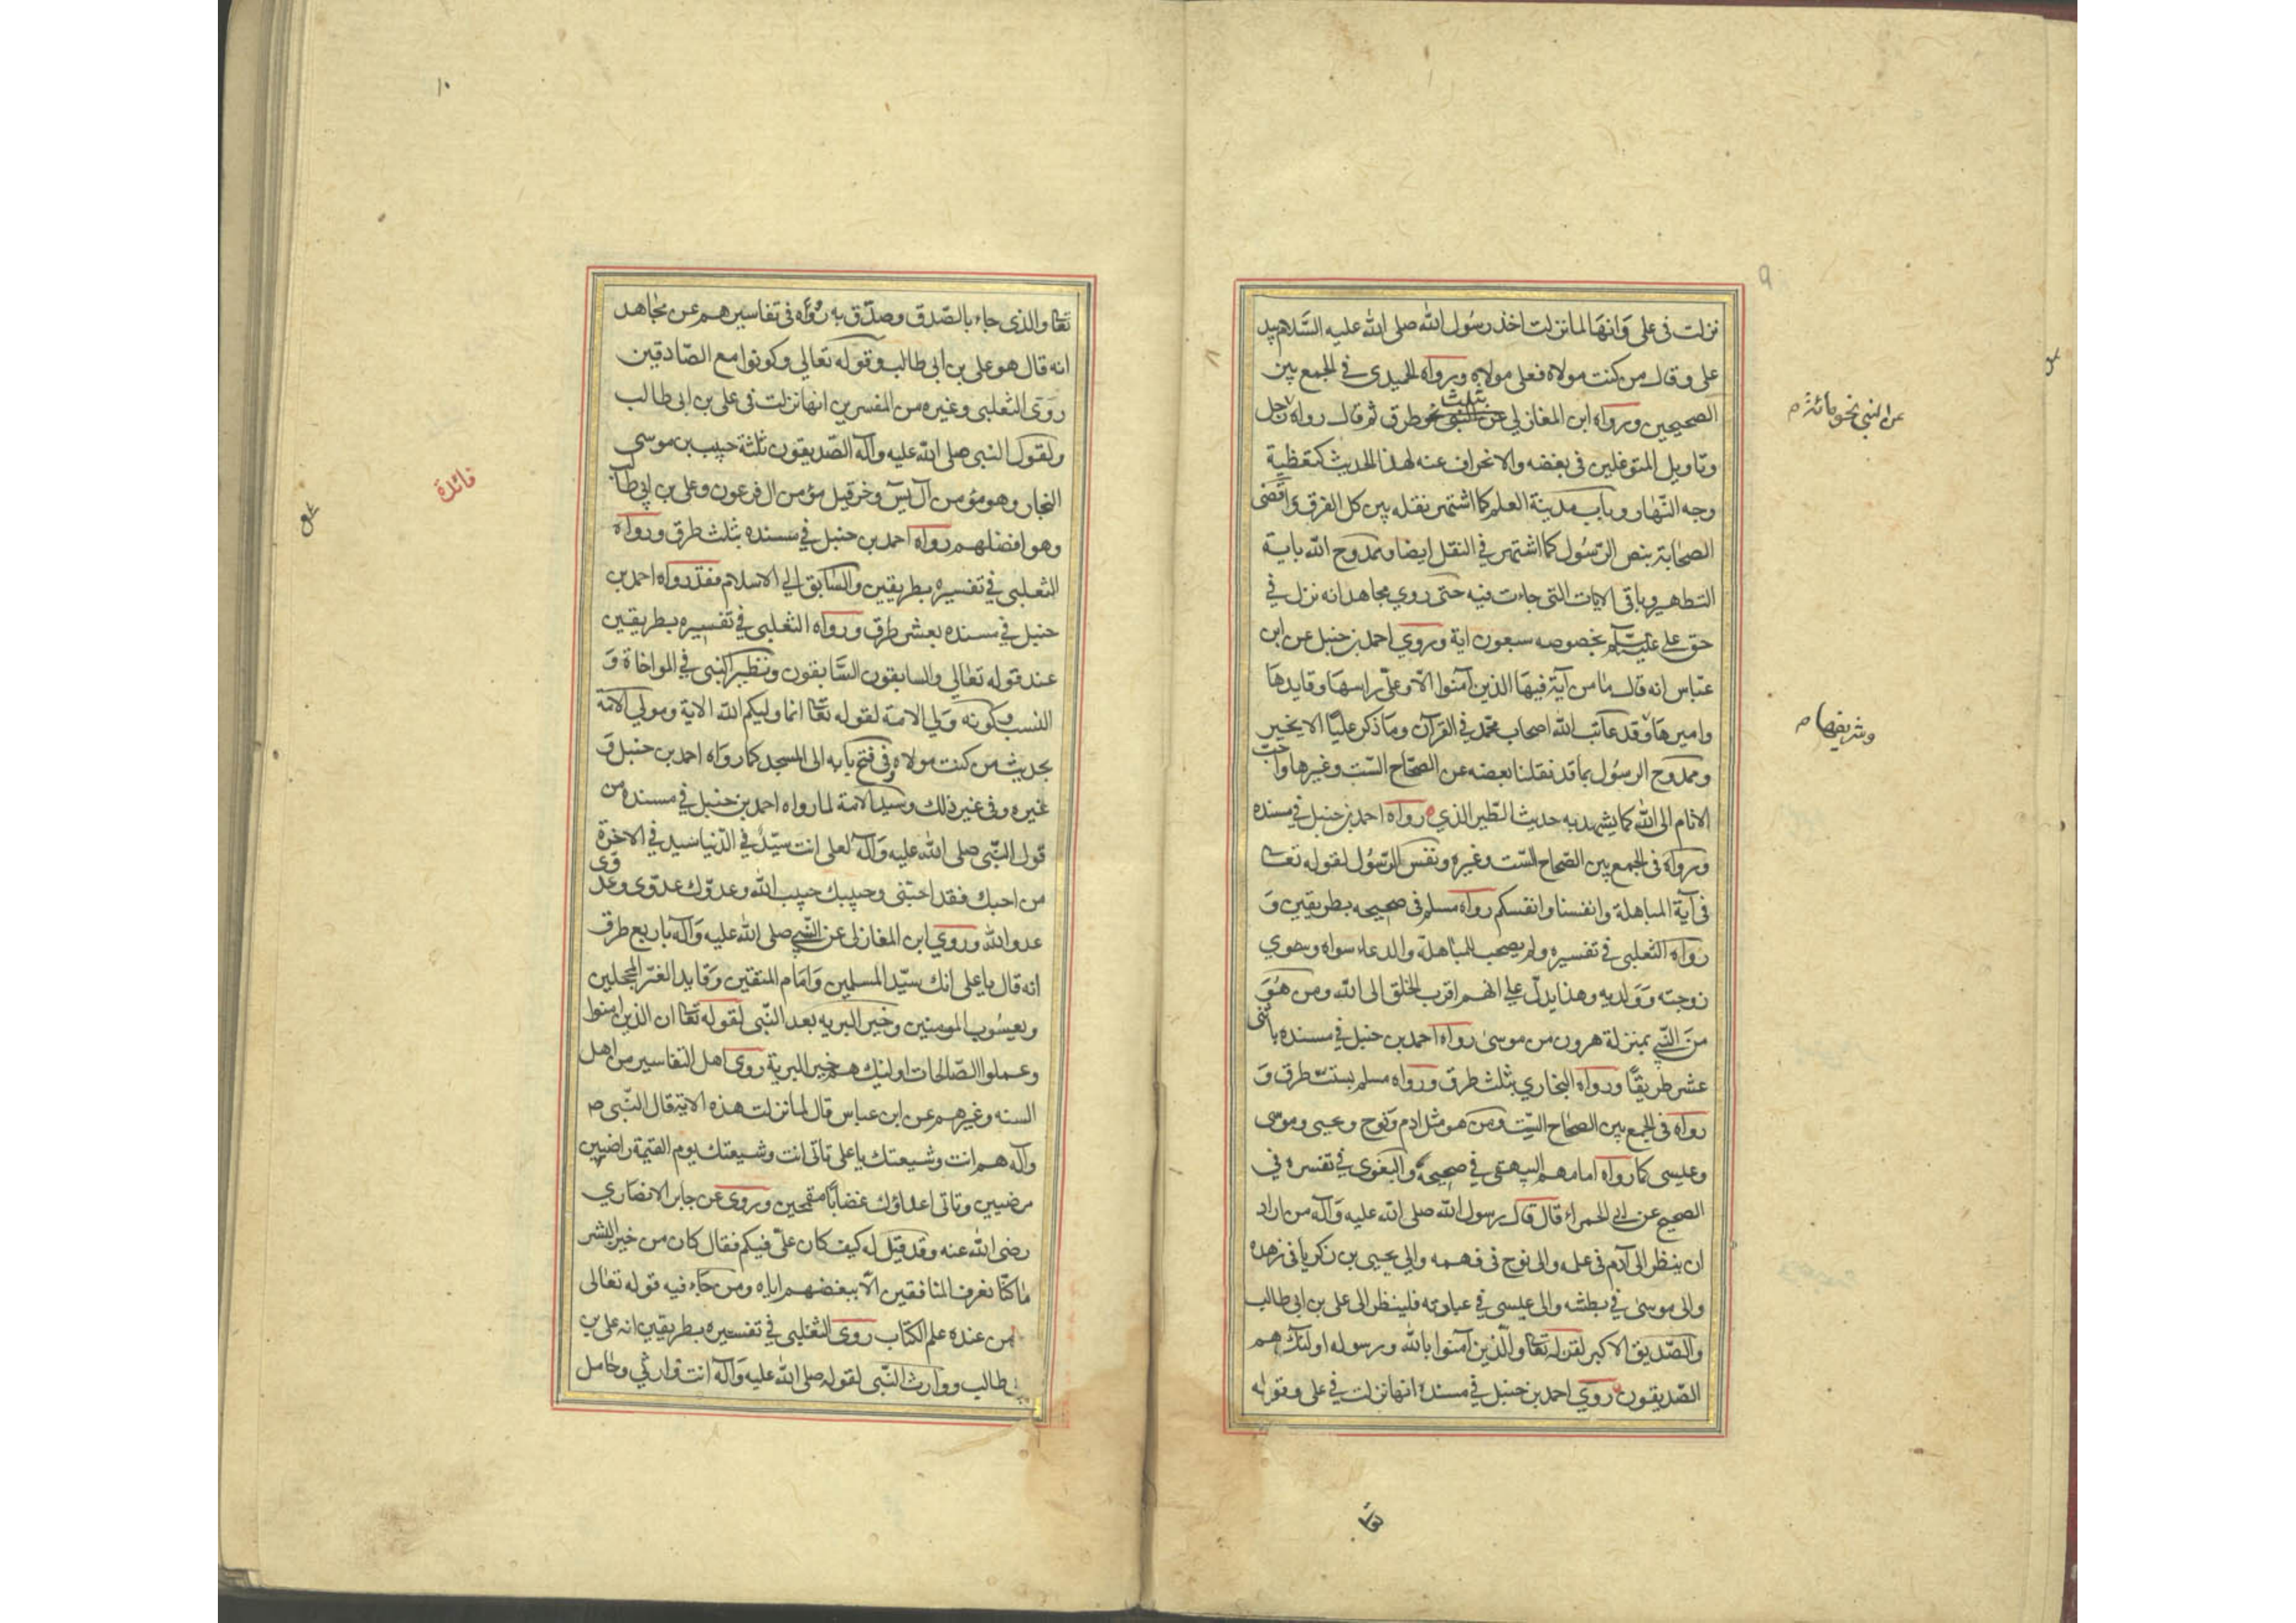 نزلت فى على وانها لما نزلت اخذ رسول الله صلى الله عليه السلام بيد
على وقال من كنت مولاه فعلى مولاه ورواه الحميدى فى الجمع بين
الصحيحين ورواه ابن المغازلي بثلث طرق ثم قال رواه
عن النبي نحو مائة م
وتاويل المتوغلين فى بغضه والانحراف عنه لهذا الحديث كتغطية
وجه النهار وباب مدينة العلم كما اشتهر نقله بين كل الفرق واقضى
الصحابة بنص الرسول كما اشتهر فى النقل ايضا وممدوح الله باية
التطهير وباقى الايات التى جاءت فيه حتى روي مجاهد انه نزل في
حق علي عليه السلم بخصوصه سبعون اية وروي احمد بن حنبل عن ابن
عباس انه قال ما من آية فيها الذين آمنوا الا وعلى راسها وقايدها
وشريفها م
واميرها وقد عاتب الله اصحاب محمد فى القرآن وما ذكر عليا الا بخير
وممدوح الرسول بما قد نقلنا بعضه عن الصحاح الست وغيرها واحب
الانام الى الله كما يشهد به حديث الطير الذي رواه احمد بن حنبل فى مسنده
ورواه فى الجمع بين الصحاح الست وغيره ونفس الرسول لقوله تعا
فى آية المباهلة وانفسنا وانفسكم رواه مسلم فى صحيحه بطريقين و
رواه الثعلبى فى تفسيره ولم يصحب للمباهلة والدعاء سواه وسوي
زوجته وولديه وهذا يدل على انهم اقرب الخلق الى الله ومن هو
من النبي بمنزلة هرون من موسى رواه احمد بن حنبل فى مسنده باثنى
عشر طريقا ورواه البخاري بثلث طرق ورواه مسلم بست طرق و
رواه فى الجمع بين الصحاح الست ومن هو مثل ادم ونوح ويحيى وموسى
وعيسى كما رواه امامهم البيهقى في صحيحه والبغوى فى تفسره فى
الصحيح عن ابى الحمراء قال قال رسول الله صلى الله عليه وآله من اراد
ان ينظر الى آدم فى علمه والى نوح فى فهمه والي يحيى بن زكريا فى زهده
والى موسى فى بطشه والى عيسى فى عبادته فلينظر الى على بن ابى طالب
والصديق الاكبر لقوله تعا والذين آمنوا بالله ورسوله اولئك هم
الصديقون روي احمد بن حنبل فى مسنده انها نزلت فى على وقوله
تعا
١٠
تعا والذى جاء بالصدق وصدق به رواه فى تفاسيرهم عن مجاهد
انه قال هو على بن ابى طالب وقوله تعالي وكونوا مع الصادقين
روى الثعلبى وغيره من المفسرين انها نزلت فى على بن ابى طالب
ولقول النبى صلى الله عليه وآله الصديقون ثلثة حبيب بن موسي
فائدة
النجار وهو مؤمن آل يس وخرقيل مؤمن ال فرعون وعلى بن ابى طا
وهو افضلهم رواه احمد بن حنبل في مسنده بثلث طرق ورواه
الثعلبى فى تفسيره بطريقين والسابق الي الاسلام فقد رواه احمد بن
حنبل فى مسنده بعشر طرق ورواه الثعلبى فى تفسيره بطريقين
عند قوله تعالي والسابقون السابقون ونظير النبى فى المواخاة و
النسب وكونه ولي الامة لقوله تعا انما وليكم الله الاية ومولي الامة
بحديث من كنت مولاه وفى فتح بابه الى المسجد كما رواه احمد بن حنبل و
غيره وفى غير ذلك وسيد الامة لما رواه احمد بن حنبل في مسنده من
قول النبى صلى الله عليه وآله لعلى انت سيد في الدنيا سيد فى الاخرة
من احبك فقد احبنى وحبيبك حبيب الله وعدوك عدوى وعدوى
عدو الله وروي ابن المغازلى عن النبي صلى الله عليه وآله باربع طرق
انه قال يا على انك سيد المسلمين وامام المتقين وقايد الغر المحجلين
ويعسوب المومنين وخير البريه بعد النبى لقوله تعا ان الذين امنوا
وعملوا الصالحات اولئك هم خير البرية روى اهل التفاسير من اهل
السنه وغيرهم عن ابن عباس قال لما نزلت هذه الاية قال النبى ص
وآله هم انت وشيعتك يا على تاتى انت وشيعتك يوم القيمة راضيين
مرضيين وتاتى اعداؤك غضابا مقمحين وروى عن جابر الانصاري
رضى الله عنه وقد قيل له كيف كان على فيكم فقال كان من خير البشر
ما كنا نعرف المنافقين الا ببغضهم اياه ومن جاء فيه قوله تعالى
من عنده علم الكتاب روى الثعلبى فى تفسيره بطريقين انه على بن
طالب ووارث النبى لقوله صلى الله عليه وآله انت وارثي وحامل